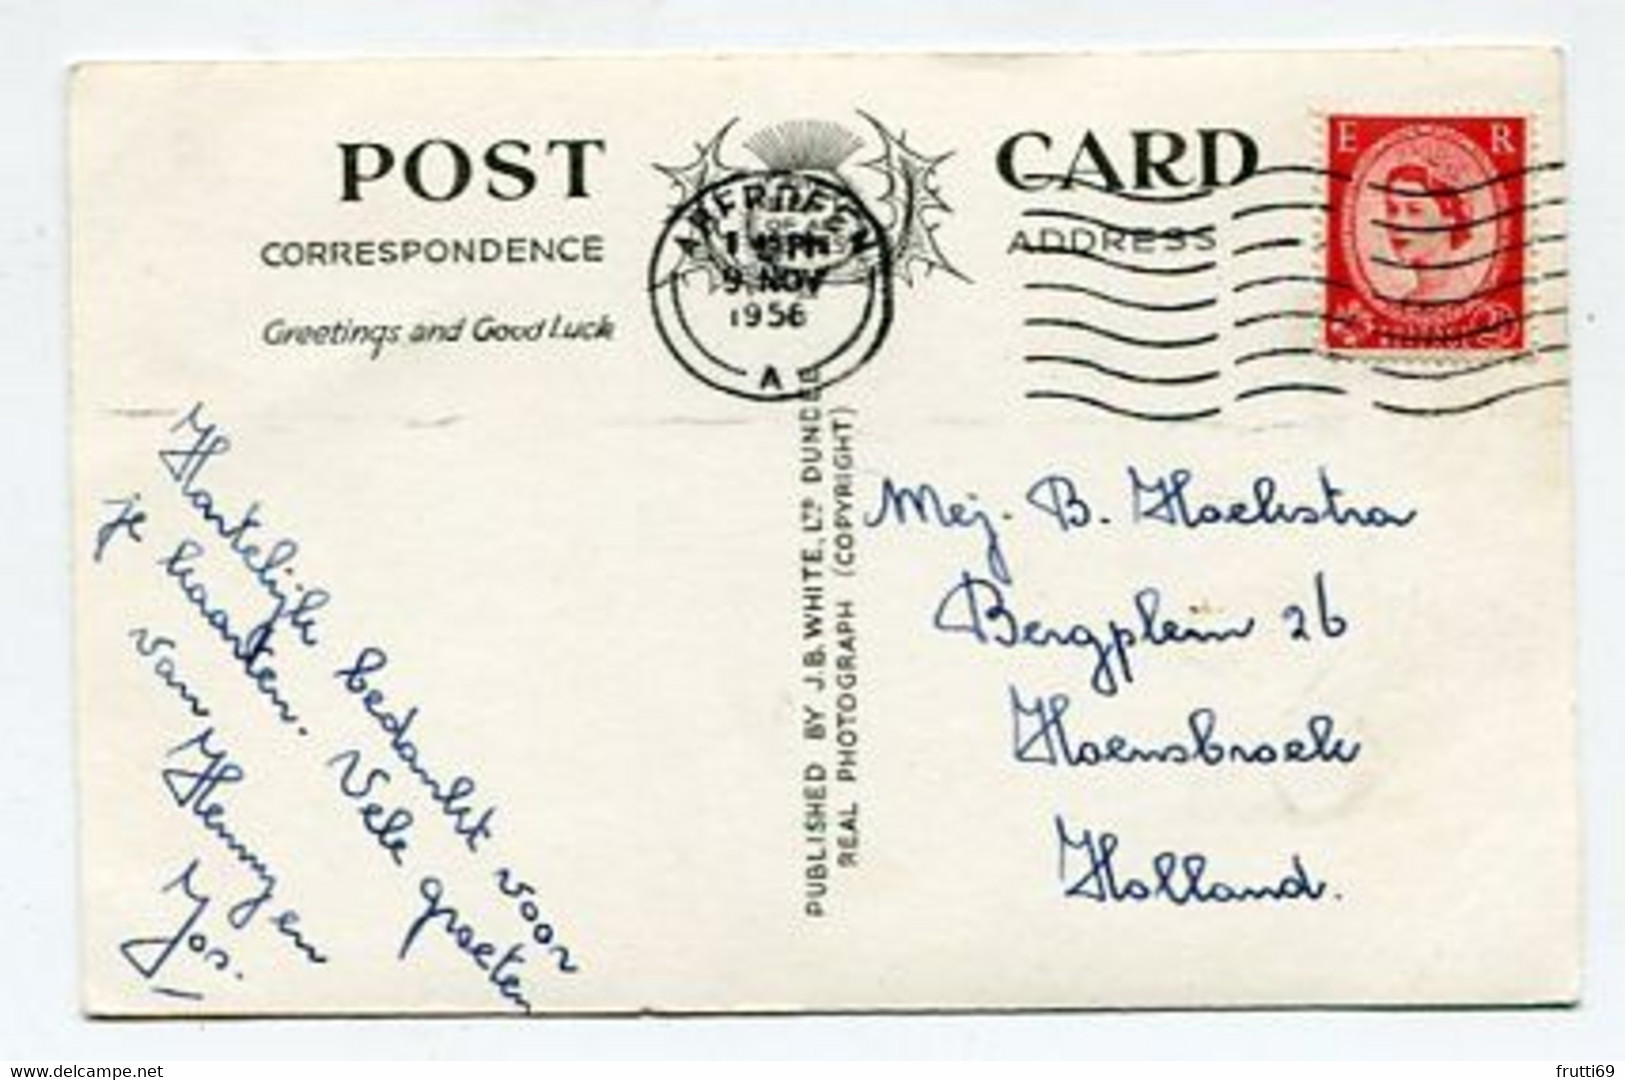 POST CARD
CORRESPONDENCE
ADDRESS
Greetings and Good Luck
ABERDEEN
PM
9 NOV
1956
A
E R
PUBLISHED BY J.B. WHITE, LTD DUNDEE
REAL PHOTOGRAPH (COPYRIGHT)
Hartelijk bedankt voor
je kaarten. Vele groeten
van Henny en
Jos.
Mej. B. Hoekstra
Bergplein 26
Hoensbroek
Holland.
frutti69